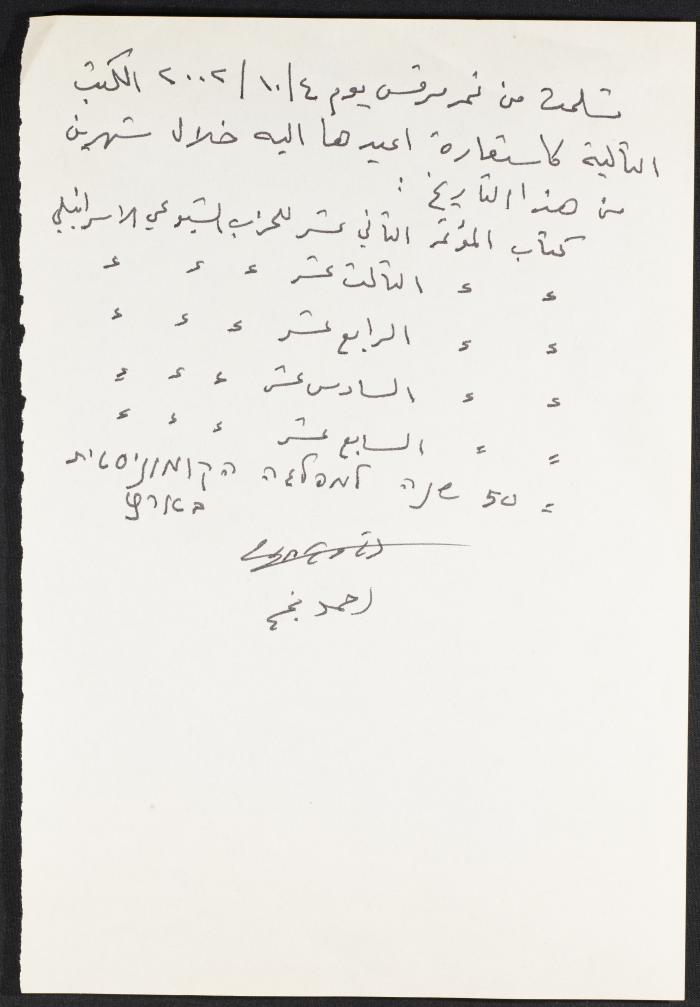 تسلمت من نمر مرقس يوم ٤/١٠/٢٠٠٢ الكتب
التالية كاستعارة اعيدها اليه خلال شهرين
من هذا التاريخ :
كتاب المؤتمر الثاني عشر للحزب الشيوعي الاسرائيلي
〃 〃 الثالث عشر 〃 〃 〃
〃 〃 الرابع عشر 〃 〃 〃
〃 〃 السادس عشر 〃 〃 〃
〃 〃 السابع عشر 〃 〃 〃
〃 50 שנה למפלגה הקומוניסטית
בארץ
احمد